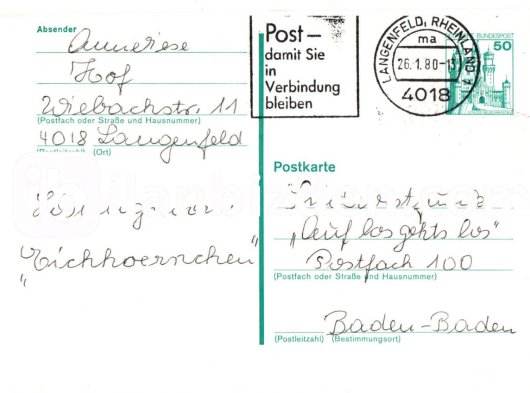 Absender
Annerose
Hof
Wiebachstr. 11
(Postfach oder Straße und Hausnummer)
4018 Langenfeld
(Postleitzahl) (Ort)
"Eichhoernchen"
Post –
damit Sie
in
Verbindung
bleiben
LANGENFELD, RHEINLAND 1
ma
26.1.80-13
4018
BUNDESPOST
50
Postkarte
"Auf los gehts los"
Postfach 100
(Postfach oder Straße und Hausnummer)
Baden-Baden
(Postleitzahl) (Bestimmungsort)